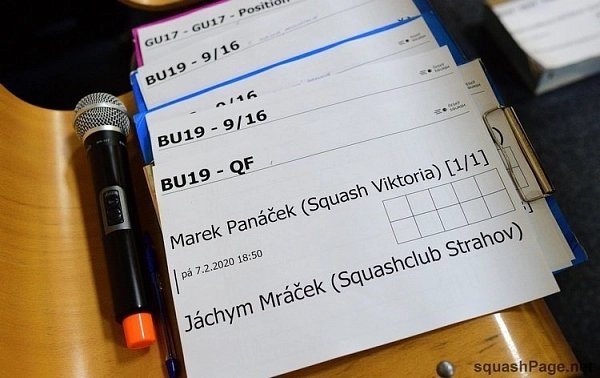 GU17 - GU17 - Position
BU19 - 9/16
BU19 - 9/16
BU19 - 9/16
BU19 - QF
Marek Panáček (Squash Viktoria) [1/1]
pá 7.2.2020 18:50
Jáchym Mráček (Squashclub Strahov)
ČESKÝ
SQUASH
squashPage.net